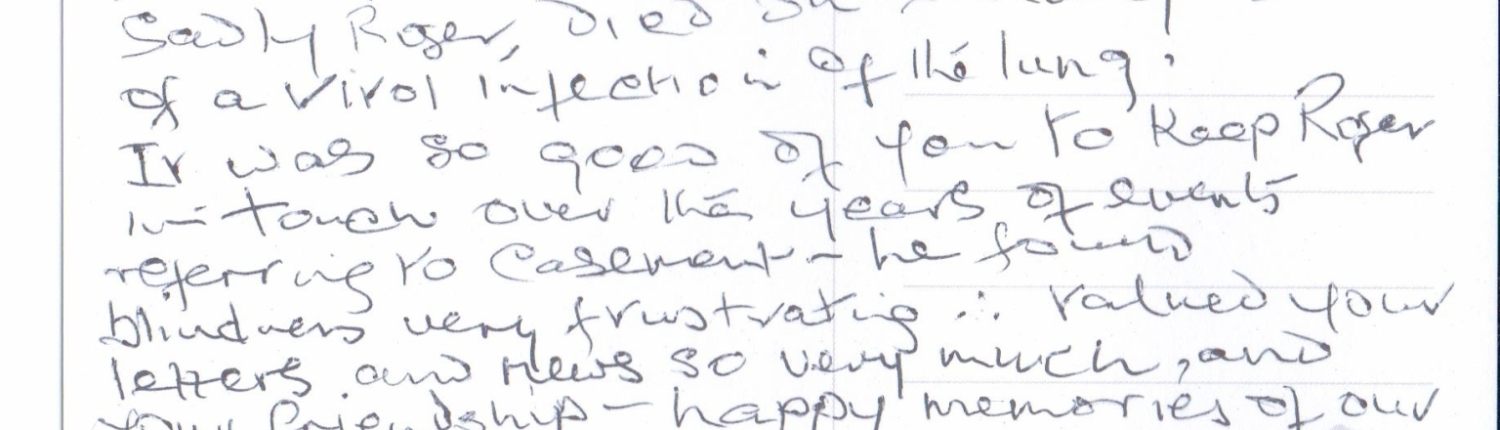 Sadly Roger, Died on
of a viral infection of the lung.
It was so good of you to keep Roger
in touch over the years of events
referring to Casement - he found
blindness very frustrating ∴ valued your
letters and news so very much, and
your friendship - happy memories of our